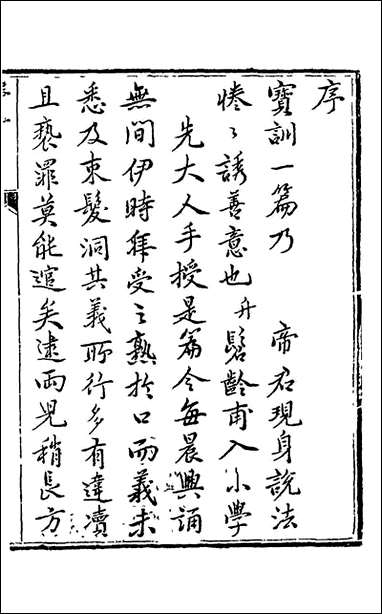 序
寶訓一篇乃 帝君現身說法
惓々誘善意也弁髫齡甫入小學
先大人手授是篇令每晨興誦
無間伊時秪受之熟於口而義未
悉及束髮洞其義所行多有違瀆
且褻罪莫能逭矣逮兩兒稍長方